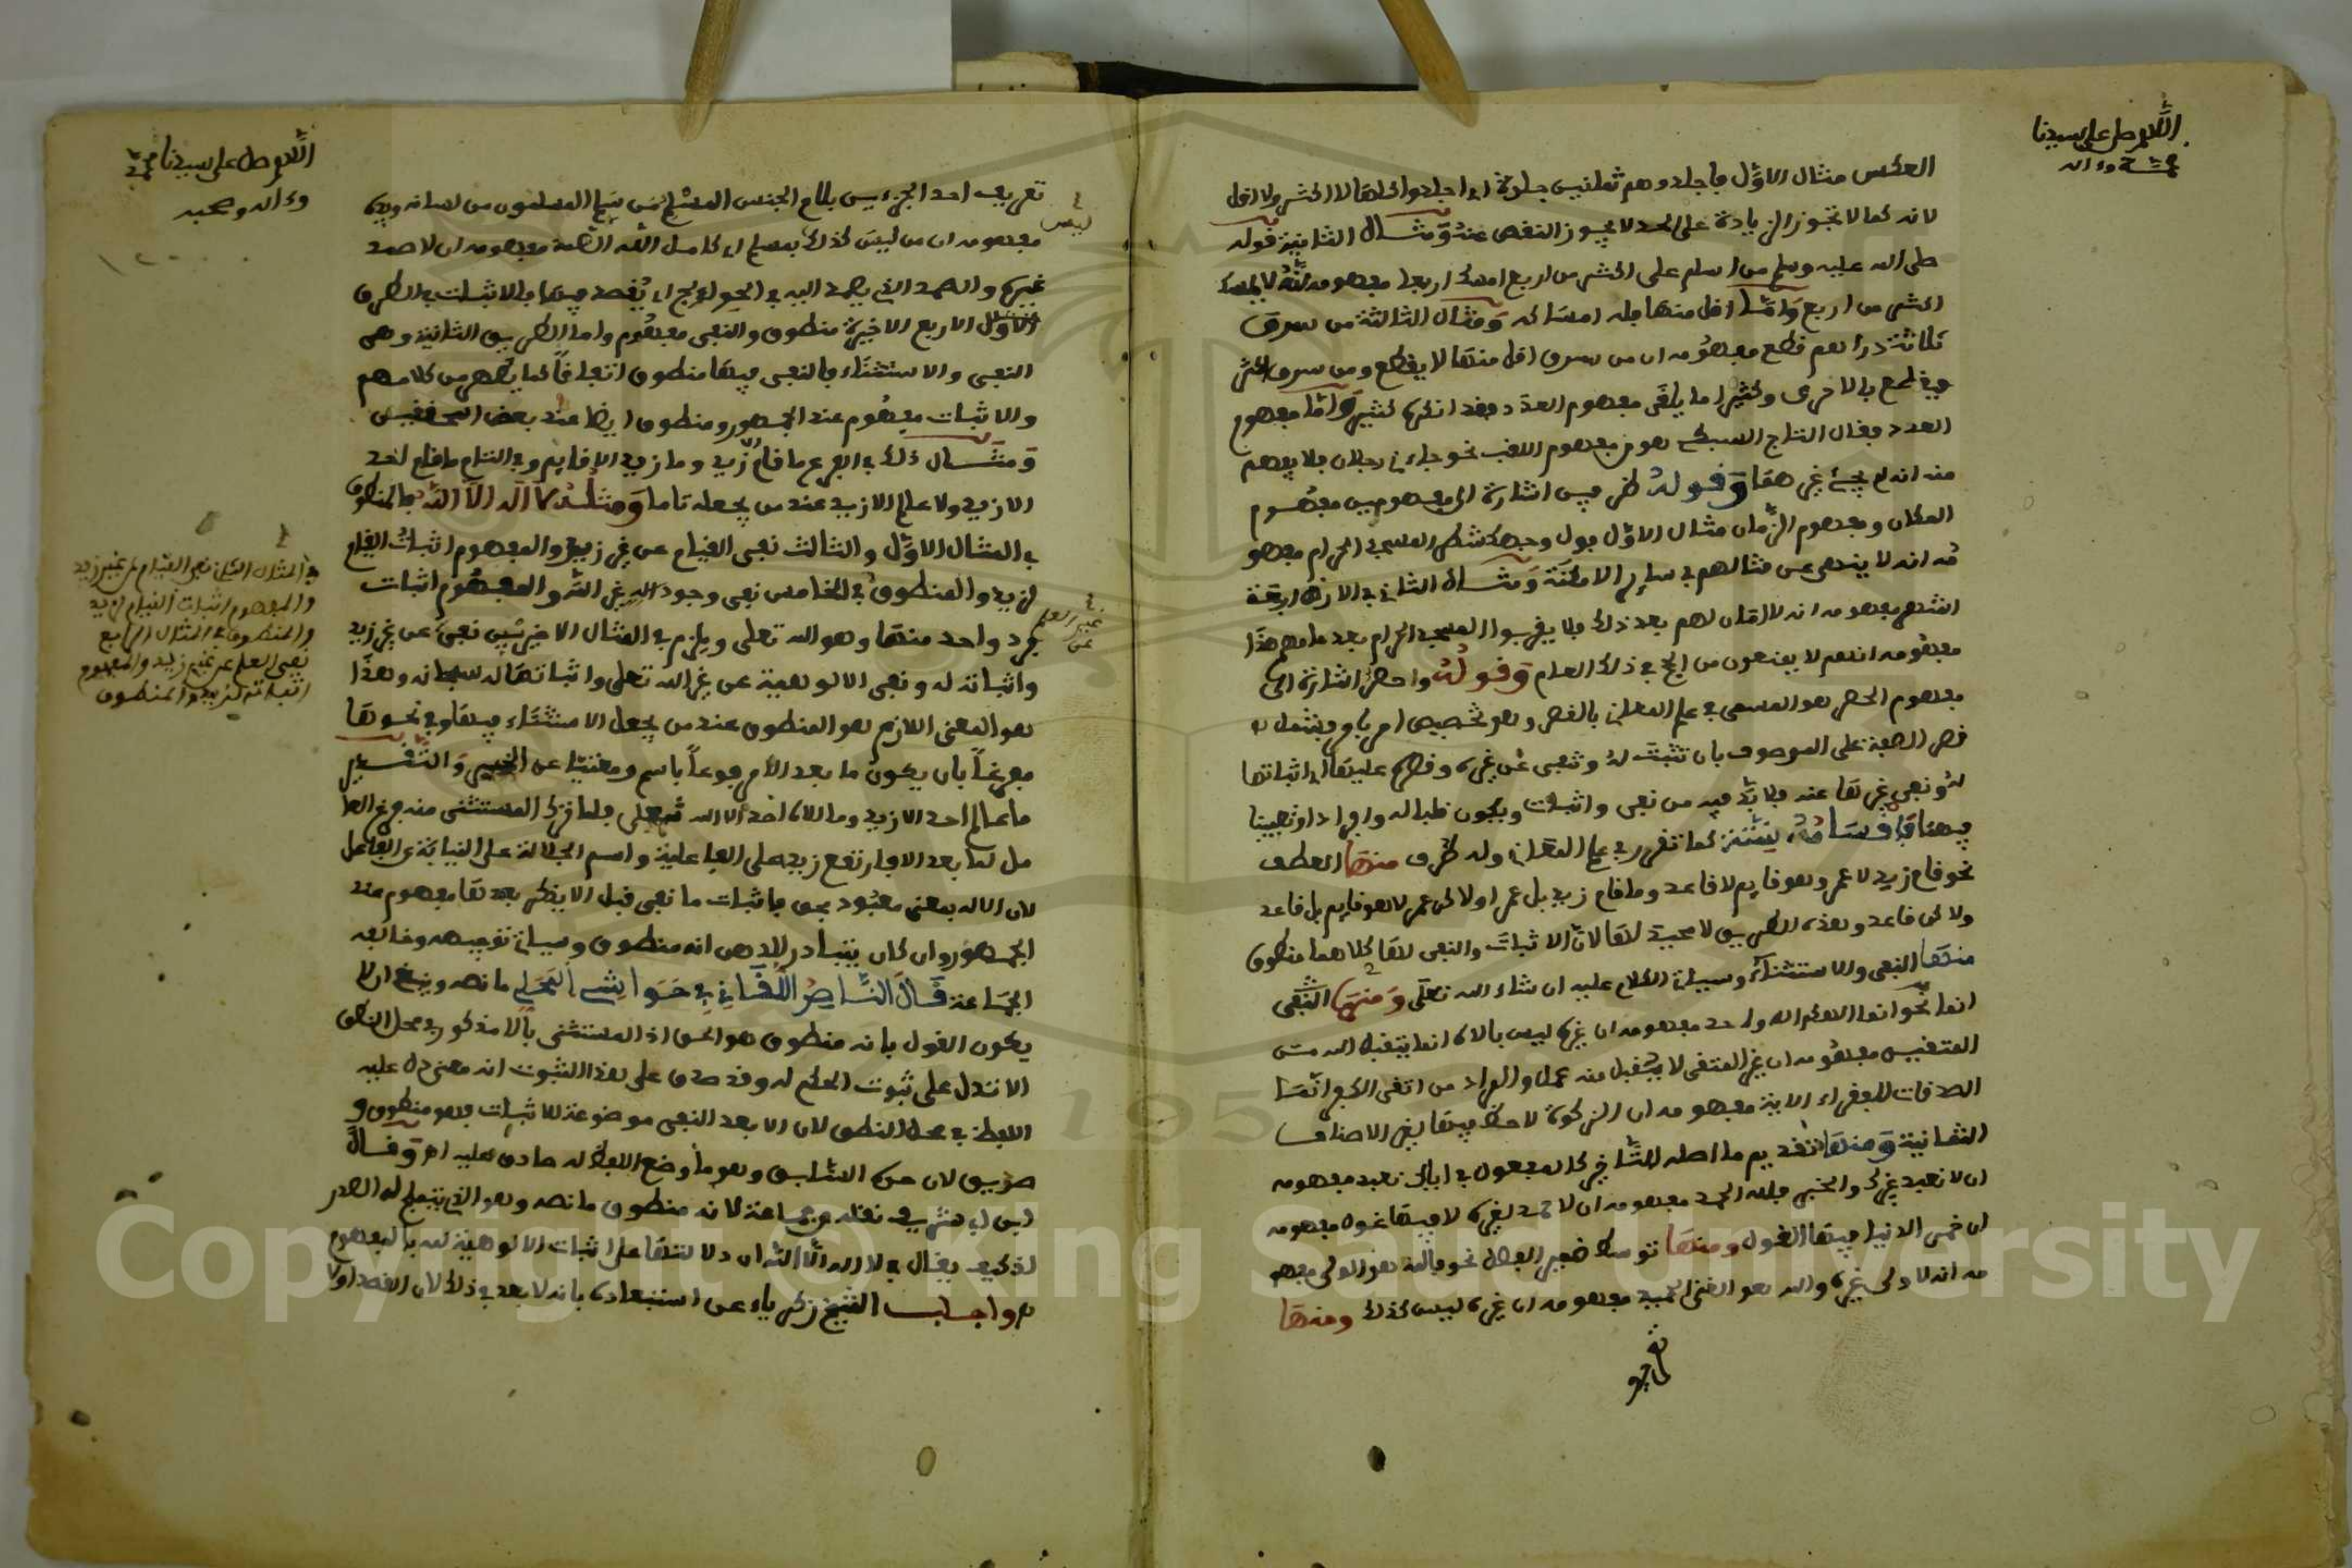 اللهم صل على سيدنا
محمد وءاله
العكس مثال الاول فاجلدوهم ثمانين جلدة اي اجلدوا كلها لا اكثر ولا اقل
لانه كما لا تجوز الزيادة على الحد لا يجوز النقص عنه ومثال الثانية قوله
صلى الله عليه وسلم من اسلم على اكثر من اربع امسك اربعا مفهومه انه لا يمسك
اكثر من اربع واما اقل منها فله امساكه ومثال الثالثة من سرق
ثلاثة دراهم قطع مفهومه ان من سرق اقل منها لا يقطع ومن سرق اكثر
يقطع بالاحرى وكثيرا ما يلغى مفهوم العدد فقد انكره كثير واما مفهوم
العدد فقال التاج السبكي هو من مفهوم اللقب نحو جاءني رجلان فلا يفهم
منه انه لم يجئ غيرهما وقوله ظرفين اشارة الى مفهومين مفهوم
المكان ومفهوم الزمان مثال الاول فول وجهك شطر المسجد الحرام مفهو
مه انه لا ينهى عن قتالهم في ساير الامكنة ومثال الثاني الاربعة
اشهر مفهومه انه لا امان لهم بعد ذلك فلا يقربوا المسجد الحرام بعد عامهم هذا
مفهومه انهم لا يمنعون من الحج في ذلك العام وقوله واحصر اشارة الى
مفهوم الحصر هو المسمى في علم المعاني بالقصر وهو تخصيص امر باخر ويشمل
قصر الصفة على الموصوف بان تثبت له وتنفى عن غيره وقصره عليها اي اثباتها
له ونفي غيرها عنه فلا بد فيه من نفي واثبات ويكون قلبا وافرادا وتعيينا
فهذه اقسامه ستة كما تقرر في علم المعاني وله طرق منها العطف
نحو قام زيد لا عمرو وهو قايم لا قاعد وما قام زيد بل عمرو او لا لكن عمرو لا هو قايم بل قاعد
ولا كن قاعد وهذه الطريق لا محيد لها لان الاثبات والنفي لها كلاهما منطوق
منها النفي والاستثناء وسياتي الكلام عليه ان شاء الله تعلى ومنها النفي
انما نحو انما الاهكم اله واحد مفهومه ان غيره ليس بالاه انما يتقبل الله من
المتقين مفهومه ان غير المتقي لا يتقبل منه عمل والمراد من اتقى الكفر انما
الصدقات للفقراء الاية مفهومه ان الزكوة لا حظ فيها لغير الاصناف
الثمانية ومنها تقديم ما اصله التاخير كالمفعول في اياك نعبد مفهومه
ان لا نعبد غيرك والخبر فلله الحمد مفهومه ان لا حمد لغيره لا فيها غول مفهومه
ان خمر الدنيا فيها الغول ومنها توسط ضمير الفصل نحو فالله هو الولي مفهو
مه انه لا ولي غيره والله هو الغني الحميد مفهومه ان غيره ليس كذلك ومنها
اللهم صل على سيدنا محمد
وءاله وصحبه
تعريف احد الجزءين بلام الجنس المسلم من سلم المسلمون من لسانه ويده
مفهومه ان من ليس كذلك ليس بمسلم اي كامل الله الصمد مفهومه ان لا صمد
غيره والصمد الذي يصمد اليه في الحوايج اي يقصد فيها بالاثبات في الطرق
الاول الاربع الاخيرة منطوق والنفي مفهوم واما الطريق الثانية وهي
النفي والاستثناء فالنفي فيها منطوق اتفاقا كما يظهر من كلامهم
والاثبات مفهوم عند الجمهور ومنطوق ايضا عند بعض المحققين
ومثال ذلك في المفرغ ما قام الا زيد وما زيد الا قايم وفي التام ما قام احد
الا زيد ولا عالم الا زيد عند من يجعله تاما ومثله لا اله الا الله فالمنطوق
في المثال الاول والثالث نفي القيام عن غير زيد والمفهوم اثبات القيام
لزيد والمنطوق في الخامس نفي وجود اله غير الله والمفهوم اثبات
فرد واحد منها وهو الله تعلى ويلزم في المثال الاخيرين نفي عن غير زيد
واثباته له ونفي الالوهية عن غير الله تعلى واثباتها له سبحانه وهذا
هو المعنى اللازم هو المنطوق عند من يجعل الاستثناء فيها وفي نحوها
مفرغا بان يكون ما بعد الا مرفوعا باسم ومغنيا عن الخبر والتقدير
ما عالم احد الا زيد وما الاه احد الا الله تعلى فلما ترك المستثنى منه فرغ العا
مل لما بعد الا فارتفع زيد على الفاعلية واسم الجلالة على النيابة عن الفاعل
لان الاله بمعنى معبود بحق فاثبات ما نفي قبل الا يذكر بعدها مفهوم عند
الجمهور وان كان يتبادر للذهن انه منطوق وسياتي توجيهه وخالفه
الجماعة قال الناصر اللقاني في حواشي المحلي ما نصه وينبغ ان لا
يكون القول بانه منطوق هو الحق اذ المستثنى بالا مذكور في محل النطق
الا تدل على ثبوت الحكم له وقد صدق على هذا الثبوت انه معنى دل عليه
اللفظ في محل النطق لان الا بعد النفي موضوعة للاثبات فهو منطوق و
صريح لان حده السابق وهو ما وضع اللفظ له صادق عليه اه وقال
ابن ابي شريف نقله وجماعة لانه منطوق ما نصه وهو الذي يثلج له الصدر
اذ كيف يقال في لا اله الا الله ان دلالتها على اثبات الالوهية لله بالمفهوم
واجاب الشيخ زكرياء عن استبعاده بانه لا بعد في ذلك لان القصد اولا
ليس
غير العلم
عن
في المثال الثاني نفي القيام عن غير زيد
والمفهوم اثبات القيام لزيد
والمنطوق في المثال الرابع
نفي العلم عن غير زيد والمفهوم
اثباته لزيد والمنطوق
Copyright © King Saud University
1957